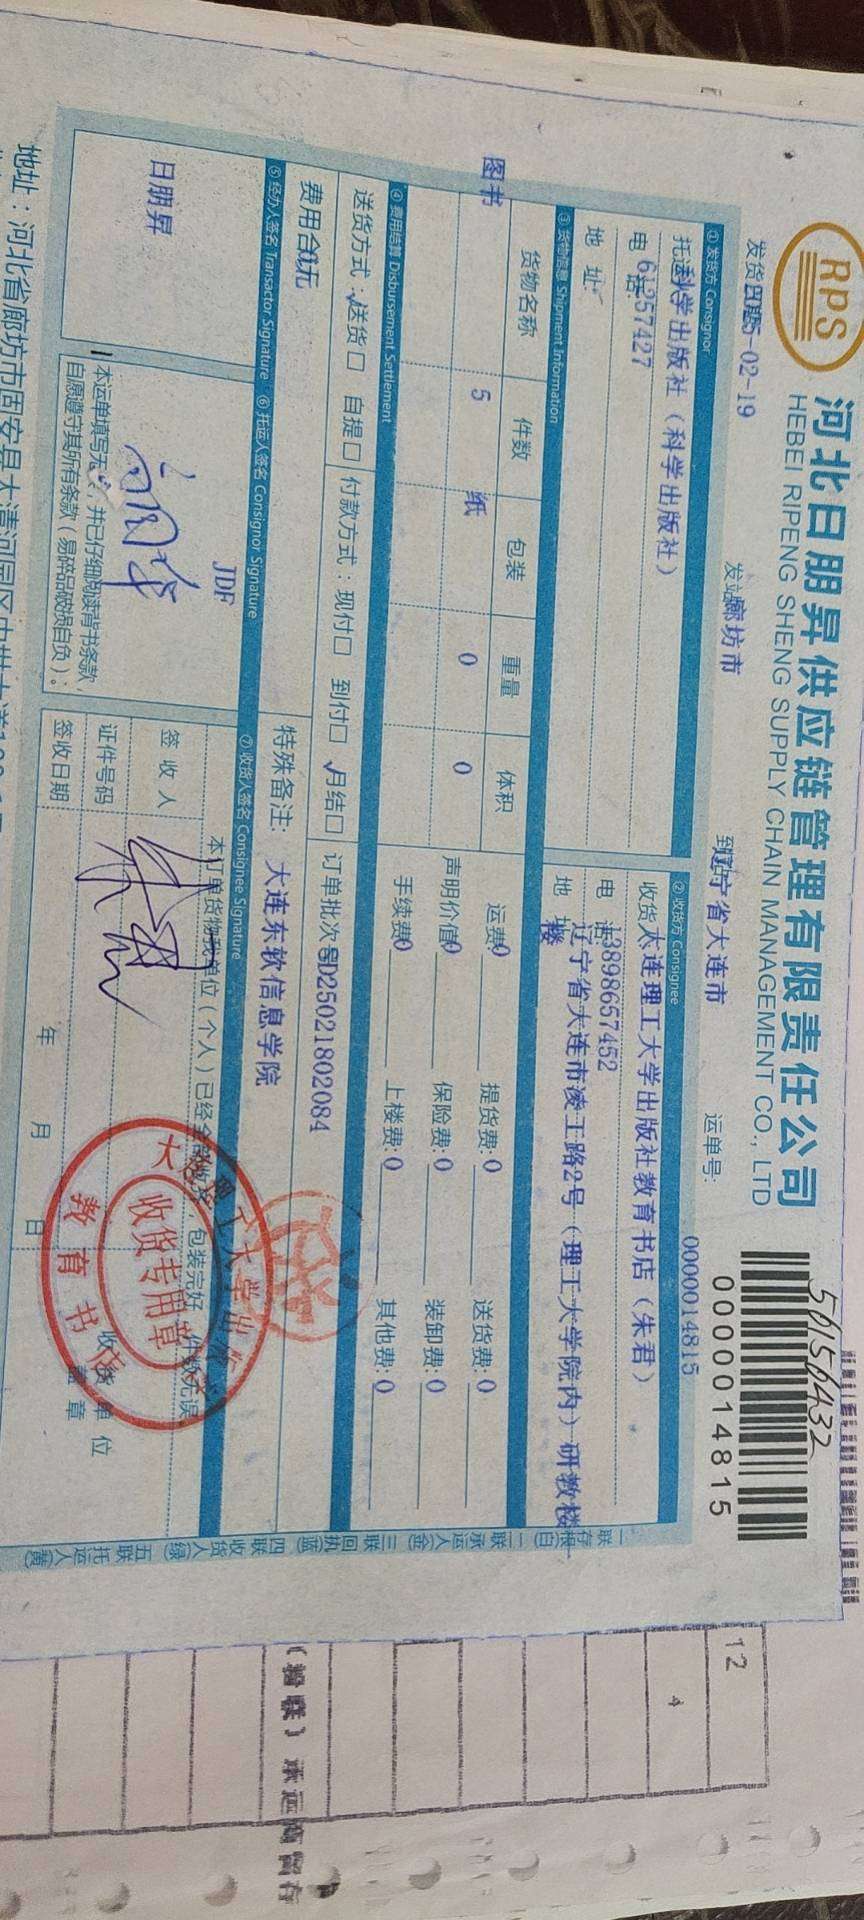 RPS
河北日朋昇供应链管理有限责任公司
HEBEI RIPENG SHENG SUPPLY CHAIN MANAGEMENT CO., LTD
50156432
0000014815
发货日期 5-02-19 发站廊坊市 到站辽宁省大连市 运单号: 0000014815
① 发货方 Consignor
托运 科学出版社（科学出版社）
电话: 61257427
地 址:
② 收货方 Consignee
收货 大连理工大学出版社教育书店（朱君）
电 话: 13898657452
地 址 辽宁省大连市凌工路2号（理工大学院内）研教楼
楼
③ 货物信息 Shipment Information
货物名称 件数 包装 重量 体积
图书 5 纸 0 0
运费0 提货费:0 送货费:0
声明价值0 保险费:0 装卸费:0
手续费0 上楼费:0 其他费:0
④ 费用结算 Disbursement Settlement
送货方式:√送货□ 自提□ 付款方式:现付□ 到付□ √月结□ 订单批次号D25021802084
费用合 0元 特殊备注: 大连东软信息学院
⑤ 经办人签名 Transactor Signature ⑥ 托运人签名 Consignor Signature ⑦ 收货人签名 Consignee Signature
日朋昇
JDF
本运单填写无 ，并已仔细阅读背书条款，
自愿遵守其所有条款（易碎品破损自负）:
本订单货物我单位（个人）已经全部 ，包装完好，件数无误
签 收 人
证件号码
签收日期 年 月 日
收货单位
盖章
大连理工大学出版社
教育书店
收货专用章
一联存根(白) 二联承运人(金) 三联回执(蓝) 四联收货人(绿) 五联托运人(黄)
地址：河北省廊坊市固安县大清河园区
12
4
（粉联）承运商留存